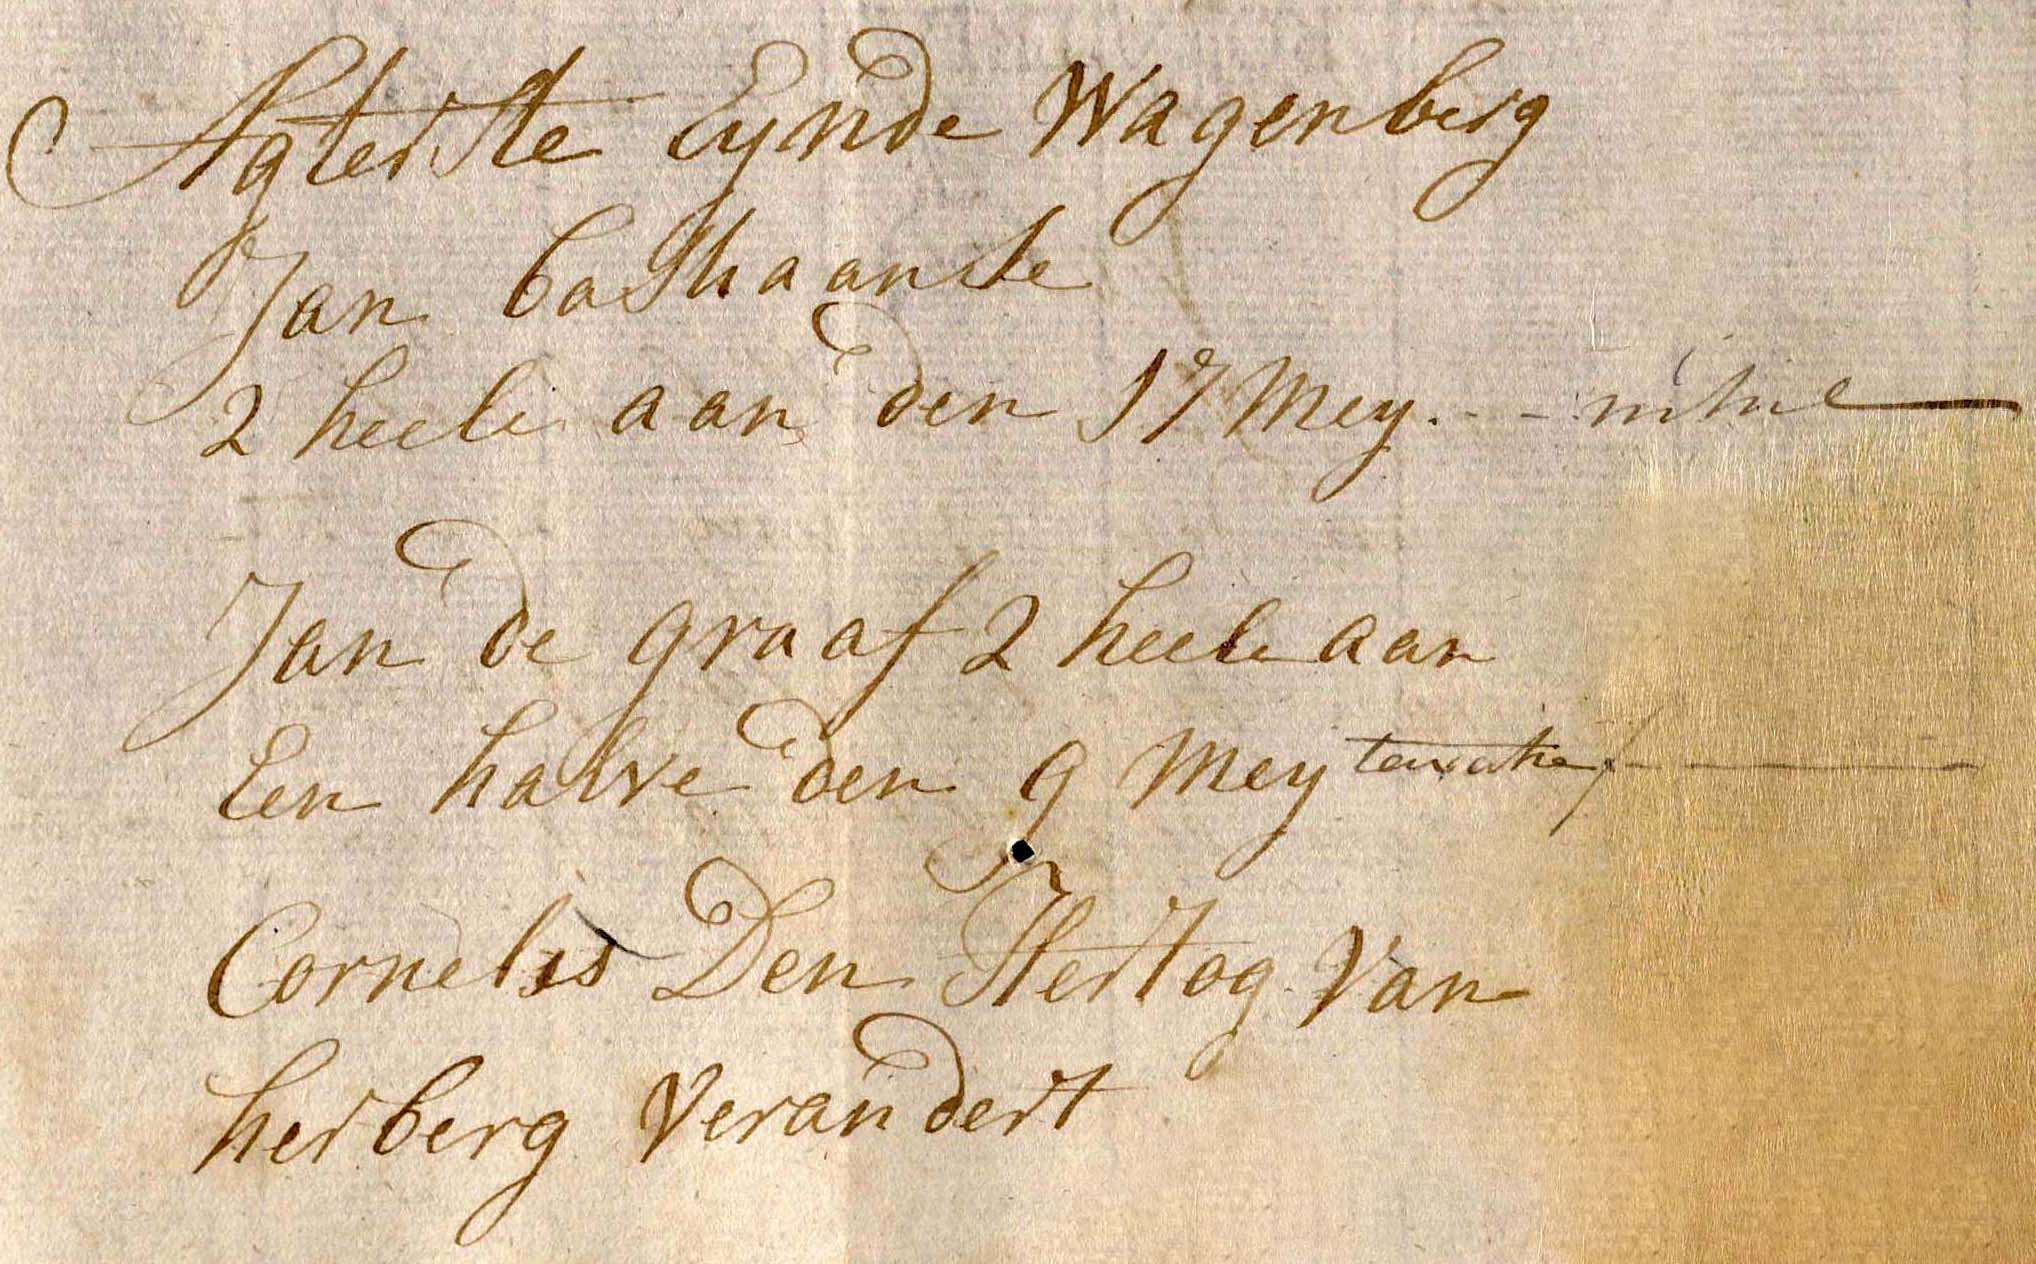 Agterste Eynde Wagenberg
Jan Casthaanse
2 heele aan den 17 Mey. - - nihil
Jan de graaf 2 heele aan
Een halve den 9 Mey
Cornelis Den Hertog Van
herberg Verandert